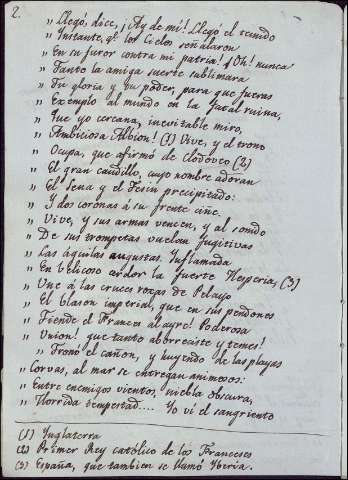 2.
„ Llegó, dice, ¡Ay de mi! Llegó el temido
„ Instante, qe. los Cielos señalaron
„ En su furor contra mi patria! ¡Oh! nunca
„ Tanto la amiga suerte sublimara
„ Tu gloria y tu poder, para que fueras
„ Exemplo al mundo en la fatal ruina,
„ Que yo cercana, inevitable miro,
„ Ambiciosa Albion! (1) Vive, y el trono
„ Ocupa, que afirmó de Clodoveo (2)
„ El gran caudillo, cuyo nombre adoran
„ El Sena y el Tesin precipitado:
„ Y dos coronas á su frente ciñe.
„ Vive, y sus armas vencen, y al sonido
„ De sus trompetas vuelan fugitivas
„ Las águilas augustas. Inflamada
„ En belicoso ardor la fuerte Hesperia, (3)
„ Une á las cruces roxas de Pelayo
„ El blason imperial, que en sus pendones
„ Tiende el Frances al ayre! Poderosa
„ Union! que tanto aborreciste y temes!
„ Tronó el cañon, y huyendo de las playas
„ Corvas, al mar se entregan animosos:
„ Entre enemigos vientos, niebla obscura,
„ Horrida tempestad.... Yo vi el sangriento
(1) Inglaterra
(2) Primer Rey católico de los Franceses
(3) España, que tambien se llamó Yberia.